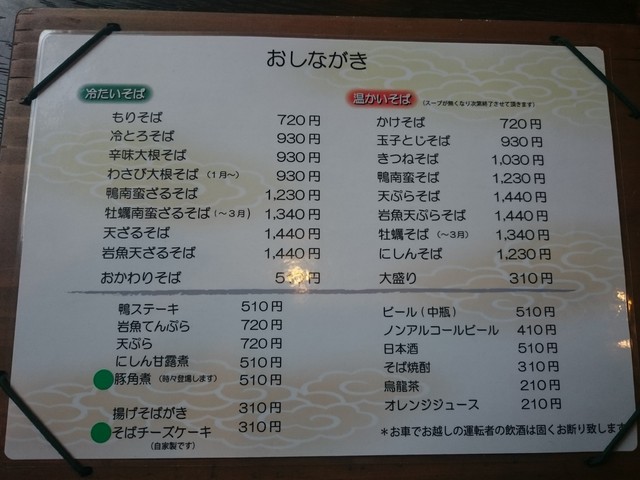 おしながき
冷たいそば
もりそば 720円
冷とろそば 930円
辛味大根そば 930円
わさび大根そば (1月～) 930円
鴨南蛮ざるそば 1,230円
牡蠣南蛮ざるそば (～3月) 1,340円
天ざるそば 1,440円
岩魚天ざるそば 1,440円
おかわりそば 円
温かいそば (スープが無くなり次第終了させて頂きます)
かけそば 720円
玉子とじそば 930円
きつねそば 1,030円
鴨南蛮そば 1,230円
天ぷらそば 1,440円
岩魚天ぷらそば 1,440円
牡蠣そば (～3月) 1,340円
にしんそば 1,230円
大盛り 310円
鴨ステーキ 510円
岩魚てんぷら 720円
天ぷら 720円
にしん甘露煮 510円
豚角煮 (時々登場します) 510円
揚げそばがき 310円
そばチーズケーキ 310円
(自家製です)
ビール (中瓶) 510円
ノンアルコールビール 410円
日本酒 510円
そば焼酎 310円
烏龍茶 210円
オレンジジュース 210円
＊お車でお越しの運転者の飲酒は固くお断り致します